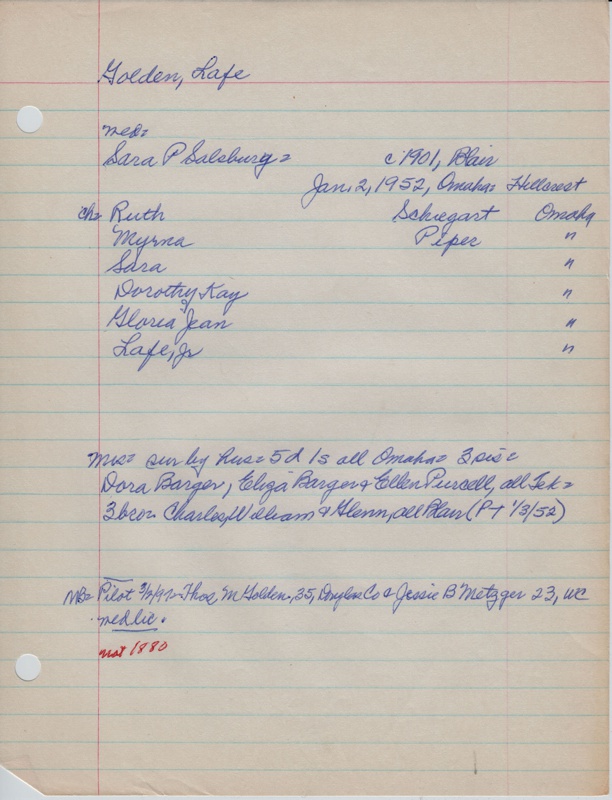 Golden, Lafe
med=
Sara P Salsburg = c 1901, Blair
Jan. 2, 1952, Omaha= Hillcrest
ch= Ruth Schiegart Omaha
Myrna Piper "
Sara "
Dorothy Kay "
Gloria Jean "
Lafe, Jr "
Mrs= sur by hus= 5d 1s all Omaha= 3 sis=
Dora Barger, Eliza Barger & Ellen Purcell, all Tek=
3 bro= Charles, William & Glenn, all Blair (P-T 1/3/52)
NB= Pilot Thos M Golden, 35, Douglas Co & Jessie B Metzger 23, WC
med lic.
not 1880